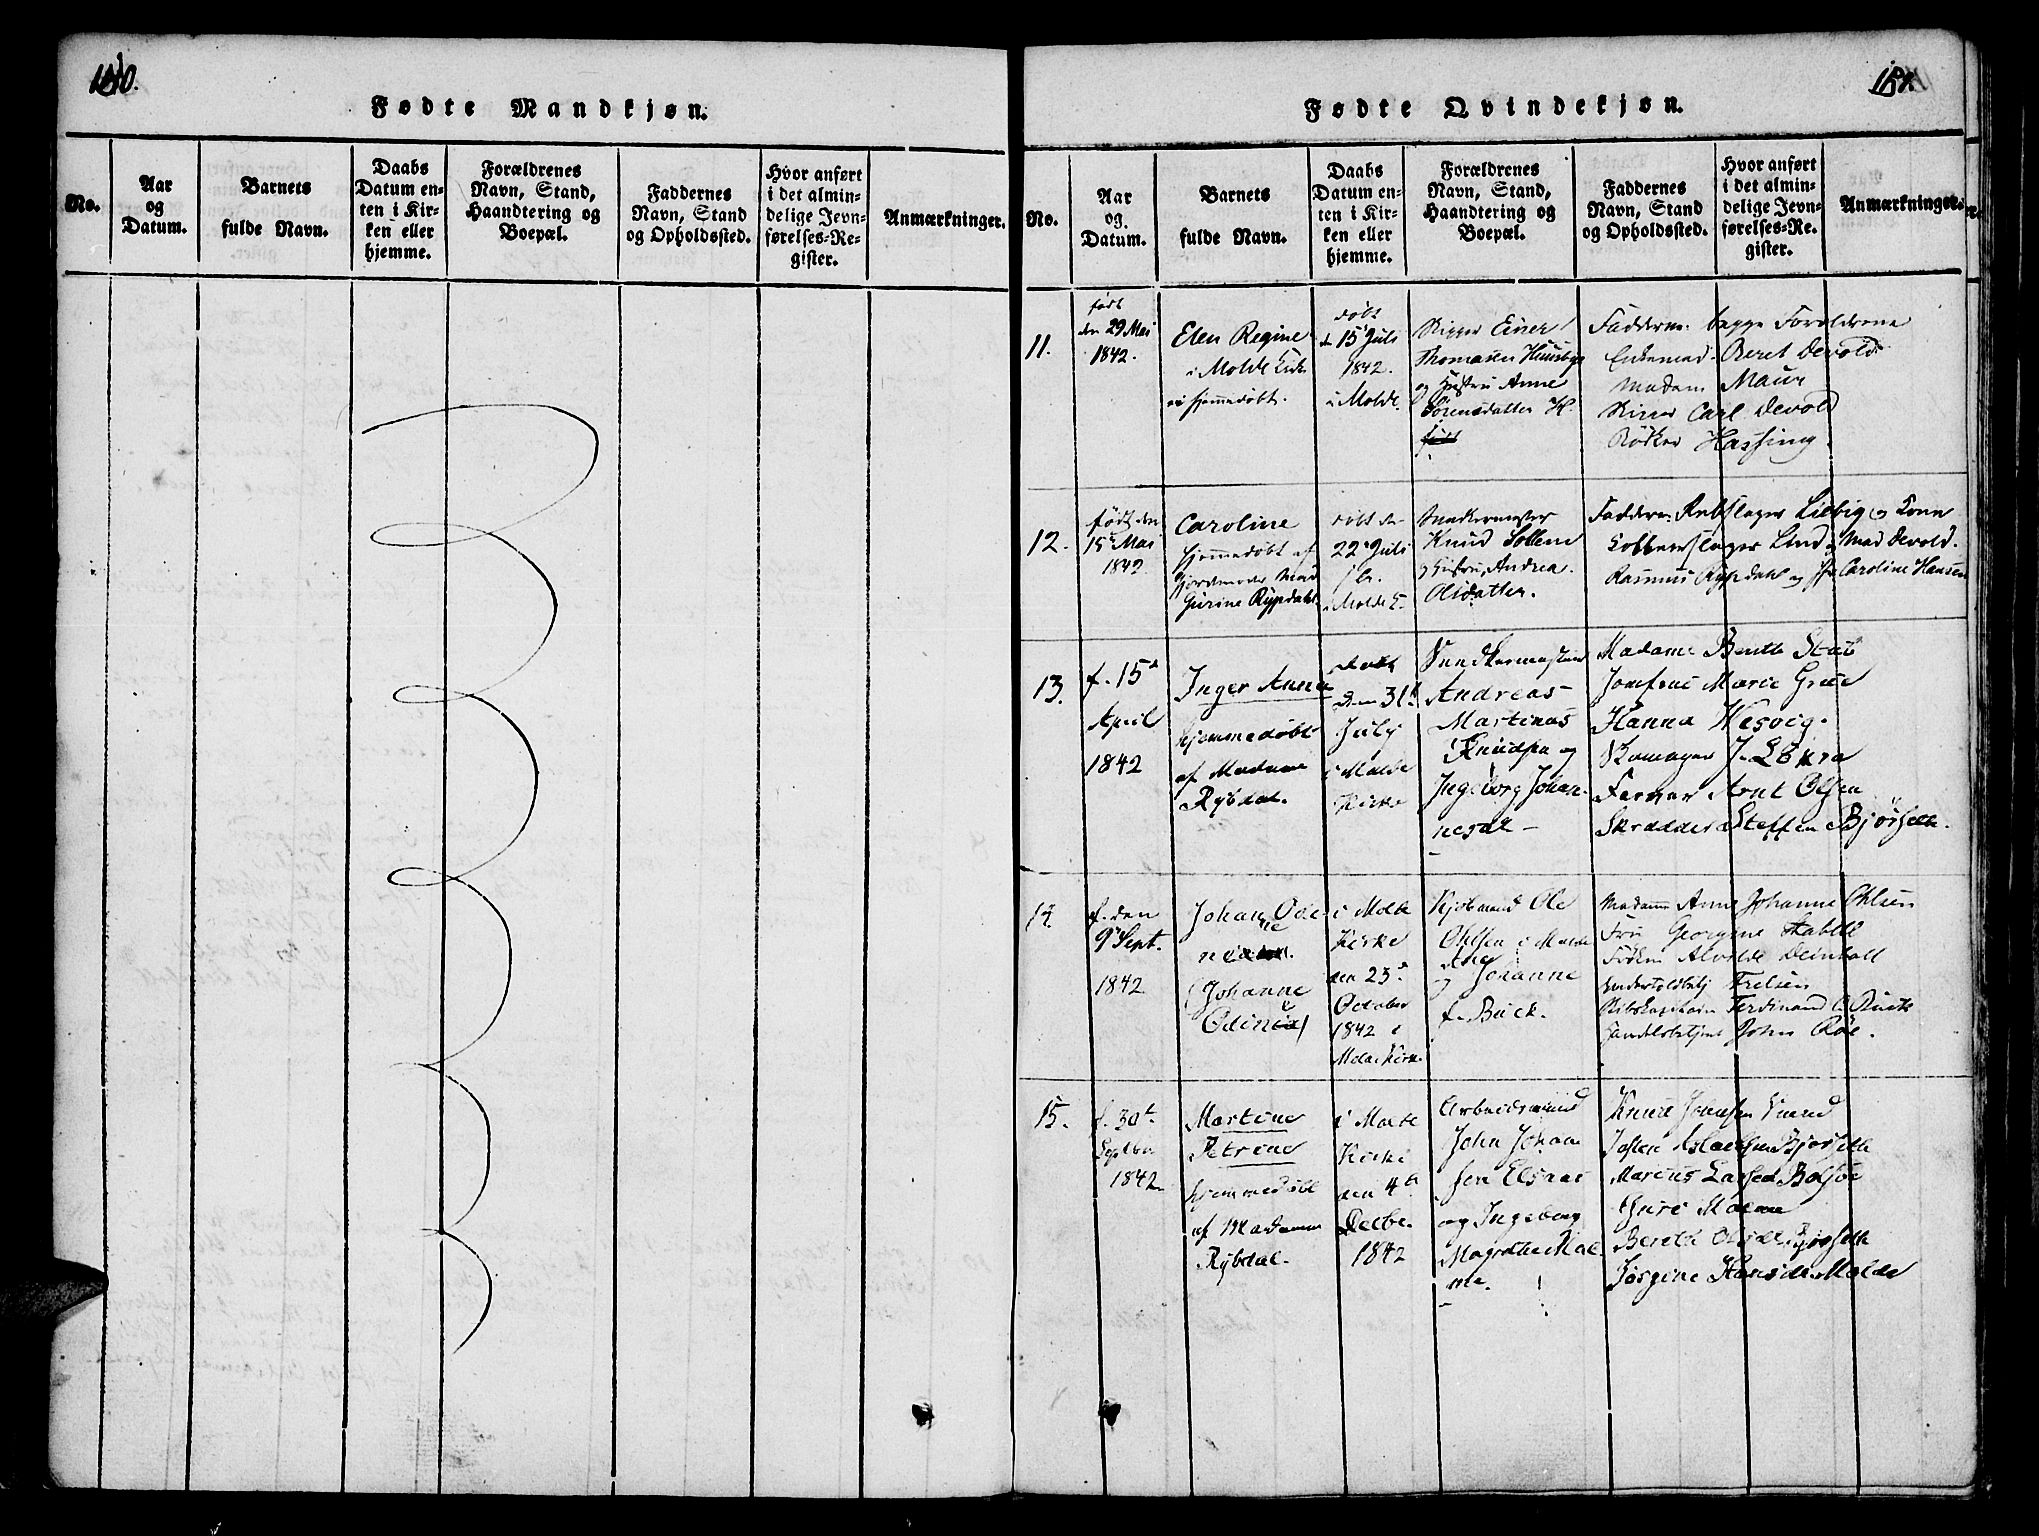 Fødte Mandkjøn.
No.
Aar
og
Datum.
Barnets
fulde Navn.
Daabs
Datum en-
ten i Kir-
ken eller
hjemme.
Forældrenes
Navn, Stand,
Haandtering og
Boepæl.
Faddernes
Navn, Stand
og Opholdssted.
Hvor anført
i det almin-
delige Jevn-
førelses-Re-
gister.
Anmærkninger.
Fødte Qvindekjøn.
No.
Aar
og
Datum.
Barnets
fulde Navn.
Daabs
Datum en-
ten i Kir-
ken eller
hjemme.
Forældrenes
Navn, Stand,
Haandtering og
Boepæl.
Faddernes
Navn, Stand
og Opholdssted.
Hvor anført
i det almin-
delige Jevn-
førelses-Re-
gister.
Anmærkninger.
11.
født
den 29 Mai
1842.
Elen Regine
i Molde
hjemmedøbt.
døbt
d 15 Juli
1842.
i Molde.
Einer
Thomassen Huusbye
og Hustru Anne
Sörensdatter H.
Fadderne. begge Forældrene
Beret Devold
Madam Maur
Carl Devold
Bödker Hassing.
12.
født den
15 Mai
1842
Caroline
hjemmedøbt af
Gjordemoder Mad
Gurine Rypdahl
døbt den
22 Juli
i Molde K.
Snedkermester
Knud Sollem
og Hustru, Andrea
Olsdatter.
Fadderne. Rebslager Liebig og Kone
Kobberslager Lind og Mad Devold.
Rasmus Rypdahl og Jfr Caroline Hansen
13.
f. 15d
April
1842
Inger Anna
hjemmedøbt
af Madame
Rybdal.
Døbt
Den 31t
July
i Molde
Kirke
Snedkermester
Andreas
Martinus
Knudsen og
Ingeborg Johan-
nesdt
Madame Benth Stub
Josefine Marie Grue
Hanna Wesvig.
Skomager J. Lökra
Farver Arnt Olsen
Skrædder Steffen Bjørseth.
14.
f. den
9d Sept.
1842
Johan Odi
ne
(Johanne
Odine)
i Molde
Kirke
den 23d
October
1842 i
Molde Kirke.
Kjøbmand Ole
Ohlsen i Molde
og Ane Johanne
f. Buck.
Madame Anne Johanne Ohlsen
Fru Georgine Stabell
Frøken Alvilde Deinboll
Frelsen
Skibskapitain Ferdinand C. Rinck
Handelsbetjent John Röe.
15.
f. 30t
Septbr
1842
Martine
Petrine
hjemmedøbt
af Madame
Rybdal.
i Molde
Kirke
den 4t
Decbr.
1842
Arbeidsmand
John Johan
sen Elsaas
og Ingeborg
Magrethe Mal
me.
Knud Johnsen
Josten Aslaksen Bjørseth
Marcus Larsen Bolsøe
Guri Malme
Berethe Olsdt Bjørseth
Jørgine Hansdt. Molde